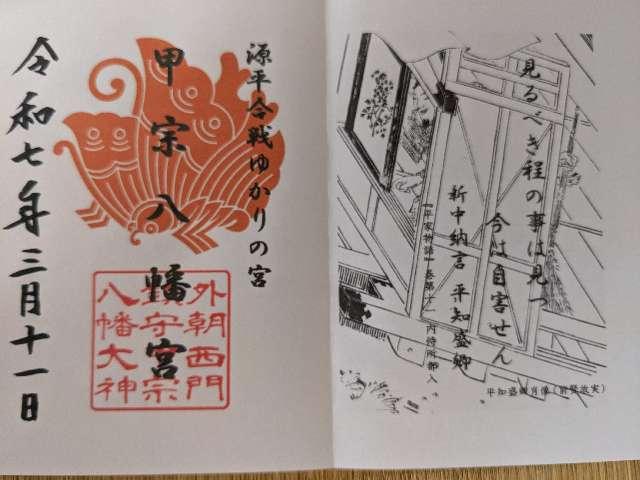 見るべき程の事は見つ
今は自害せん
新中納言 平知盛卿
『平家物語』巻第十一 内侍所都入
平知盛卿肖像(前賢故実)
源平合戦ゆかりの宮
甲宗八幡宮
外朝西門
鎮守宗
八幡大神
令和七年三月十一日